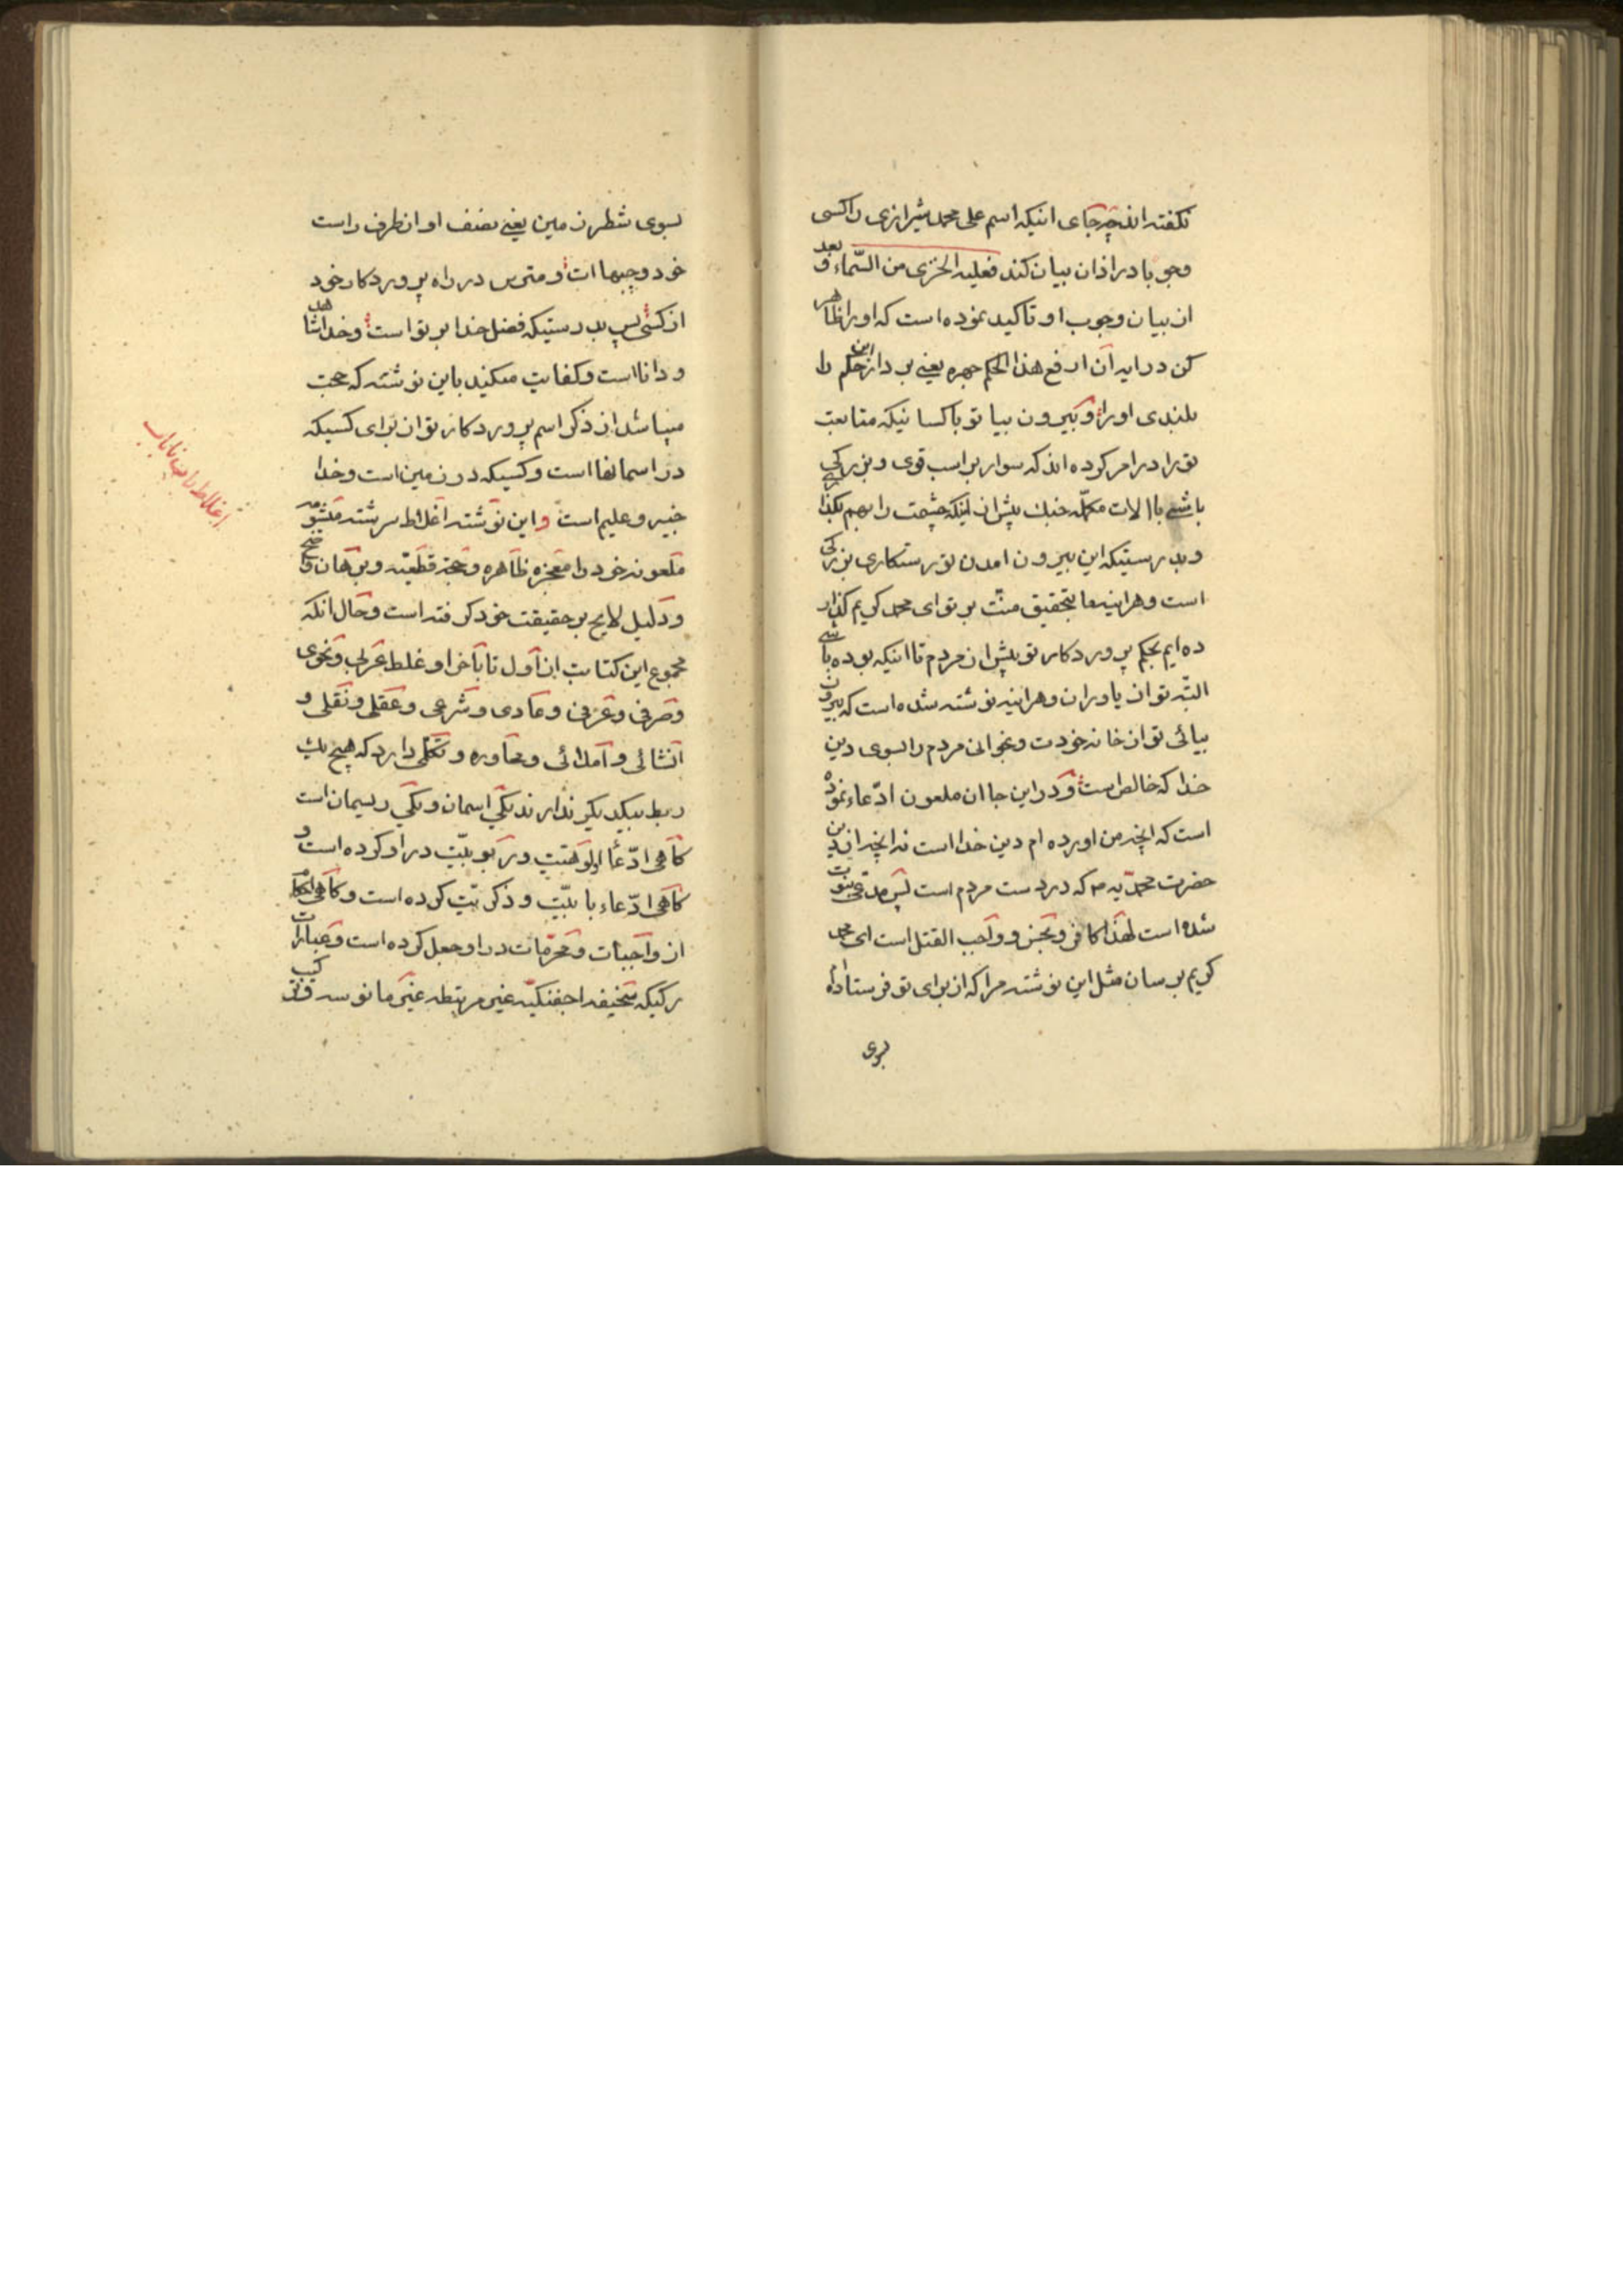 نکفته اند چه جای اینکه اسم علی محمد شیرازی را کسی
وجوبا در اذان بیان کند فعلیه الخزی من السّماء و بعد
از بیان وجوب او تاکید نموده است که او را ظاهر
کن در ایه آن ارفع هذا الحکم جهره یعنی بردار این حکم را
بلندی او را و بیرون بیا تو با کسانیکه متابعت
تو را در امر کرده اند که سوار بر اسب قوی و بزرکی
باشی با الات مکمّله جنك پیش از اینکه چشمت را بهم بکذاری
و بدرستیکه این بیرون امدن تو رستکاری بزرکی
است و هراینه ما بتحقیق منّت بر تو ای محمد کریم کذار
ده ایم بحکم پروردکار تو پیش از مردم تا اینکه بوده باشی
البتّه تو از یاوران و هراینه نوشته شده است که بیرون
بیائی تو از خانه خودت و بخوانی مردم را بسوی دین
خدا که خالص است و در این جا ان ملعون ادّعاء نموده
است که انچه من اورده ام دین خدا است نه انچه از دین
حضرت محمد یه ص که در دست مردم است پس مدّعی نبوت
شده است لهذا کافر و نجس و واجب القتل است ای محمد
کریم برسان مثل این نوشته مرا که از برای تو فرستاده ام
بسوی
بسوی شطر زمین یعنی نصف او از طرف راست
خود و چپها ات و مترس در راه پروردکار خود
از کسی پس بدرستیکه فضل خدا بر تو است و خدا شاهد
و دانا است و کفایت میکند باین نوشته که حجت
میباشد از ذکر اسم پروردکار تو از برای کسیکه
در اسمانها است و کسیکه در زمین است و خدا
خبیر و علیم است و این نوشته اغلاط سرشته مشومه
ملعونه خود را معجزه ظاهره و حجة قطعیّه و برهان واضح
و دلیل لایح بر حقیقت خود کرفته است و حال انکه
مجموع این کتابت از اول تا باخر او غلط عربی و نحوی
و صرفی و عرفی و عادی و شرعی و عقلی و نقلی و
انشائی و املائی و محاوره و تکلمی دارد که هیچ یك
ربط بیکدیکر ندارند یکی اسمان و یکی ریسمان است
کاهی ادّعا الوهیّت و ربوبیّت در او کرده است و
کاهی ادّعاء بابیّت و ذکریّت کرده است و کاهی احکام
از واجبات و محرّمات در او جعل کرده است و عبارات
رکیکه سخیفه اجفنکیّه غیر مرتبطه غیر مانوسه
اغلاط باب ناباب